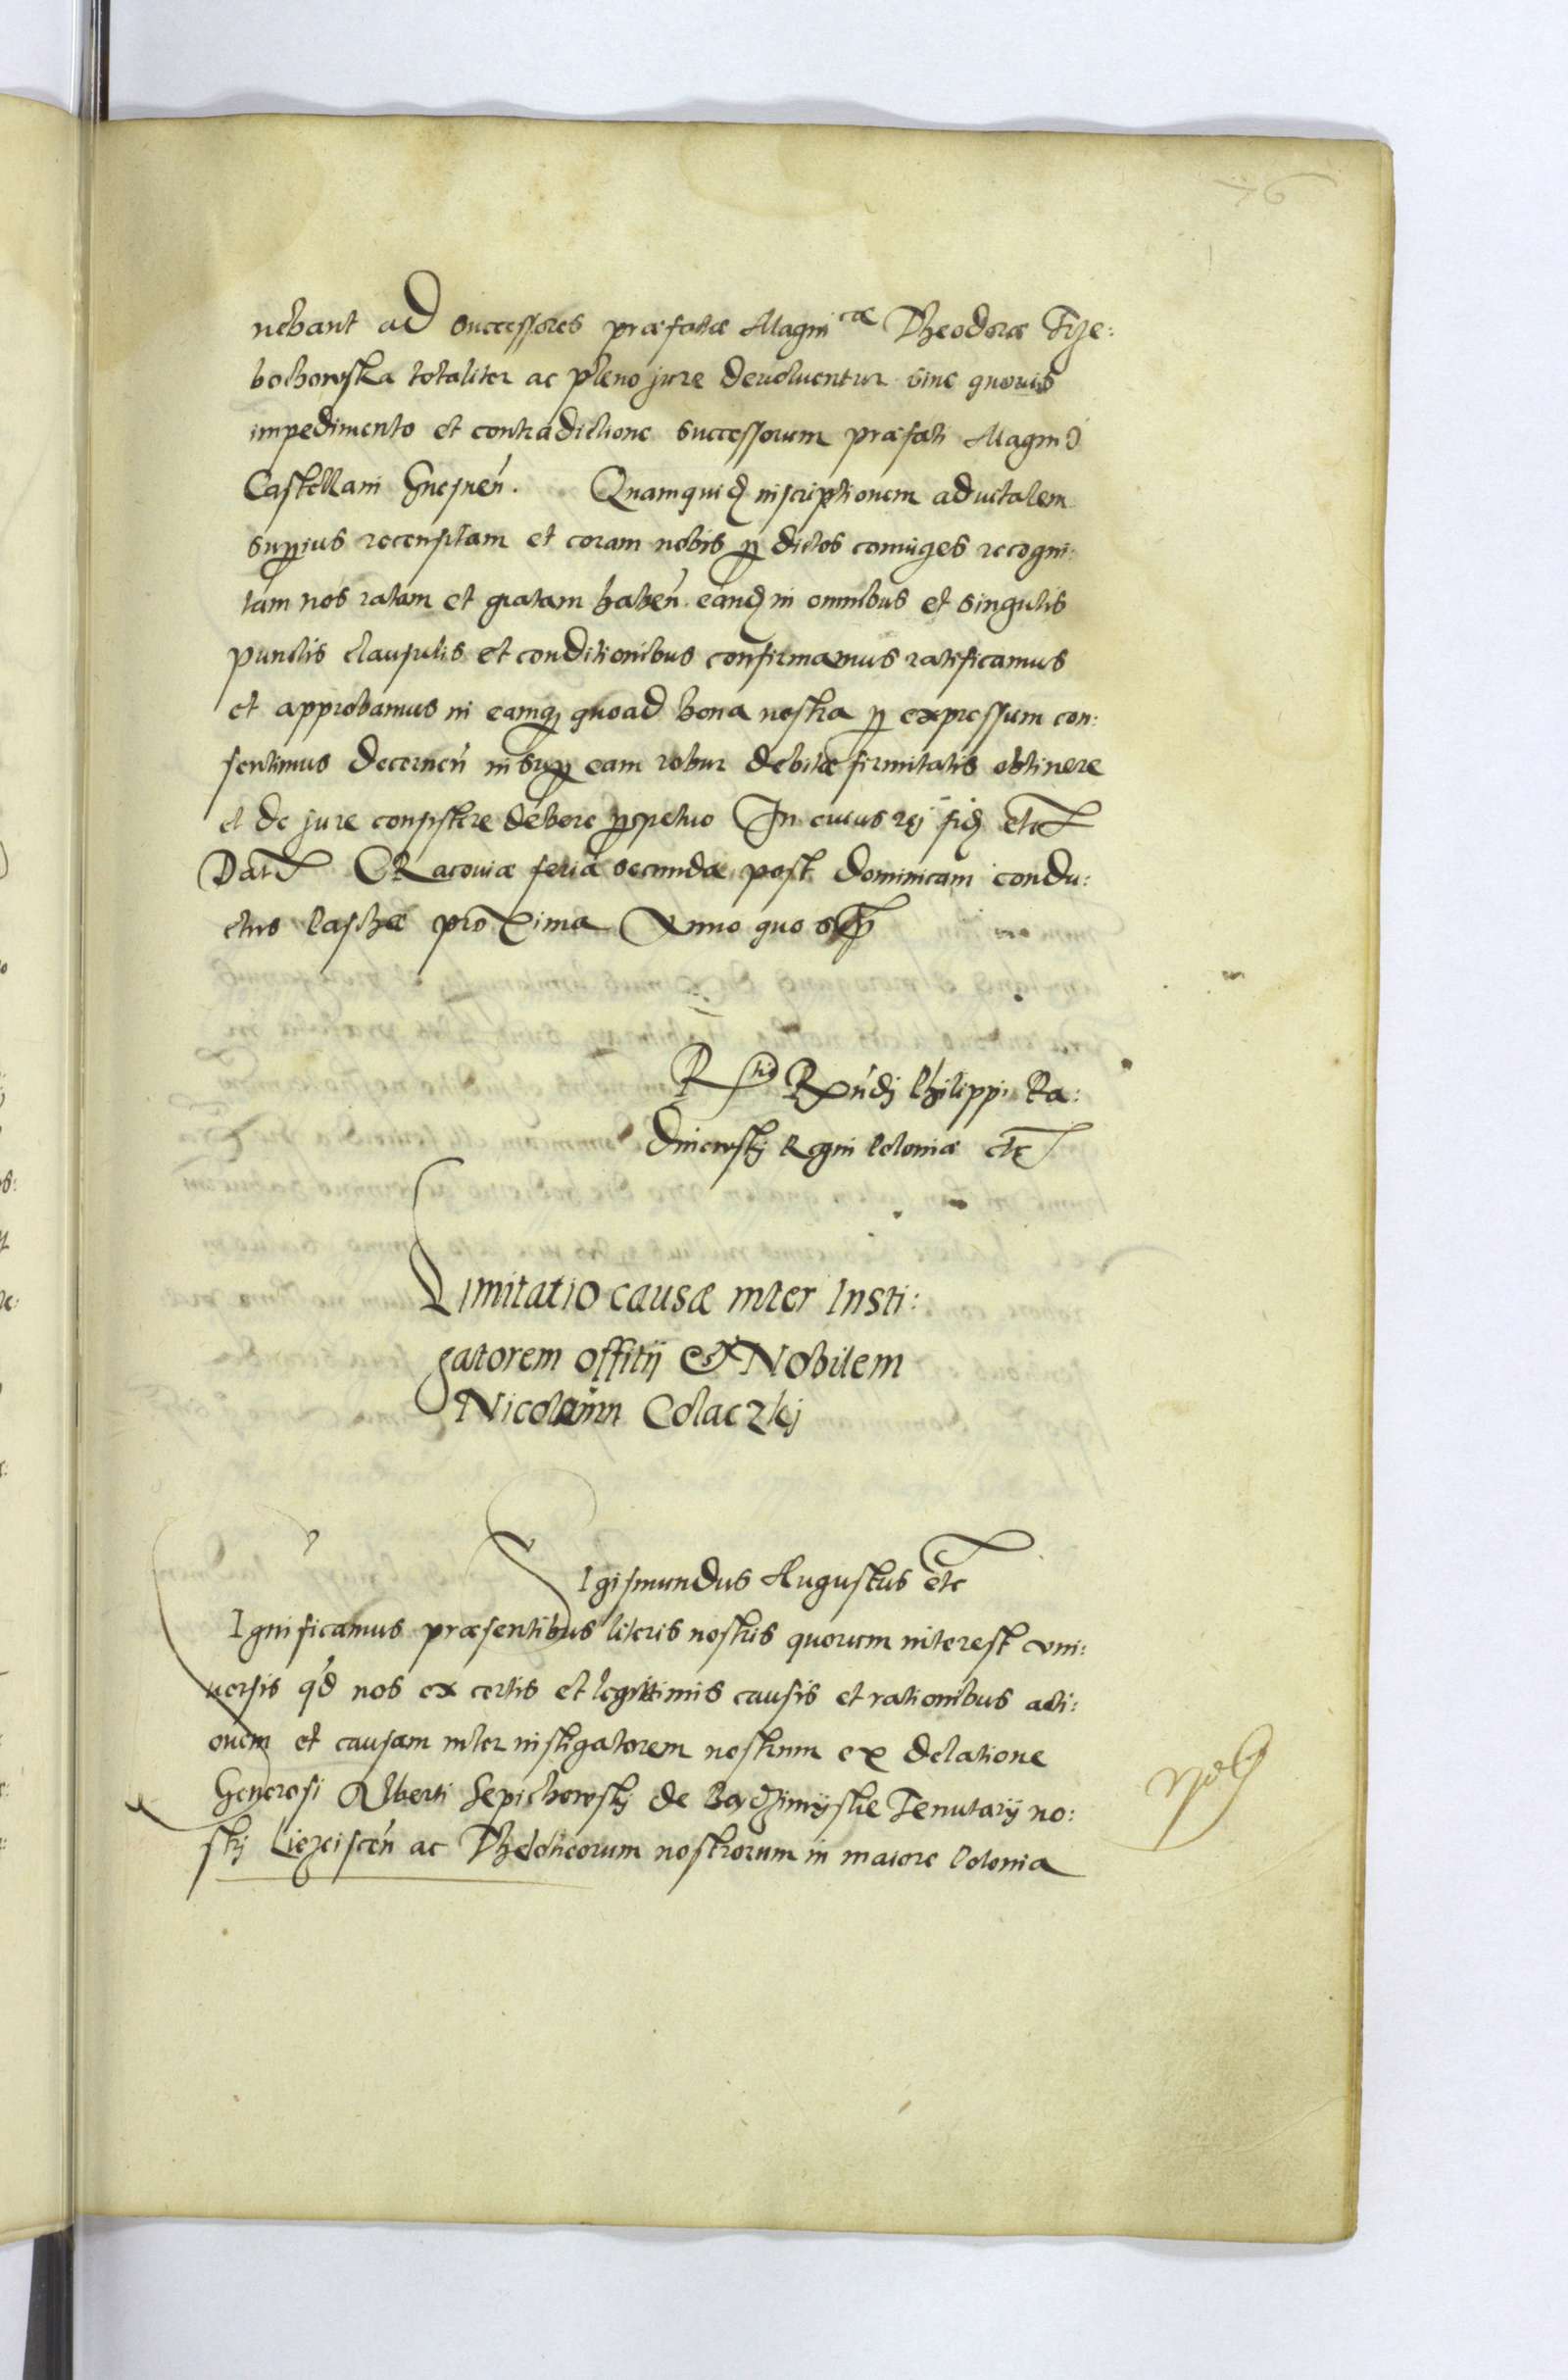 76
nebant ad successores præfatæ Magni cæ Theodoræ Trze:
bochowska totaliter ac pleno jure devoluentur sine quouis
impedimento et contradictione successorum præfati Magni ci
Castellani Gnesnen̄. Quamquid inscriptionem aduitalem
superius recensitam et coram nobis per dictos coniuges recogni:
tam nos ratam et gratam haben̄ eand in omnibus et singulis
punctis clausulis et conditionibus confirmamus ratificamus
et approbamus in eamq quoad bona nostra per expressum con:
sentimus decernen̄ insuper eam robur debitæ firmitatis obtinere
et de jure consistere debere perpetuo In cuius rei fid etc
Dat CRacoviæ feria secunda post dominicam condu:
ctus Paschæ proxima Anno quo sup
R tio Rxndi Philippi Pa:
dniewskj Regni Poloniæ etc
Limitatio causæ inter Insti:
gatorem offitij et Nobilem
Nicolaum Colaczkj
SIgismundus Augustus etc
SIgnificamus præsentibus literis nostris quorum interest vni:
uersis qd nos ex certis et legittimis causis et rationibus acti:
onem et causam inter instigatorem nostrum ex delatione
Generosi Alberti Sepichowskj de Tenutarij no:
strj ac Theloneorum nostrorum in maiore Polonia